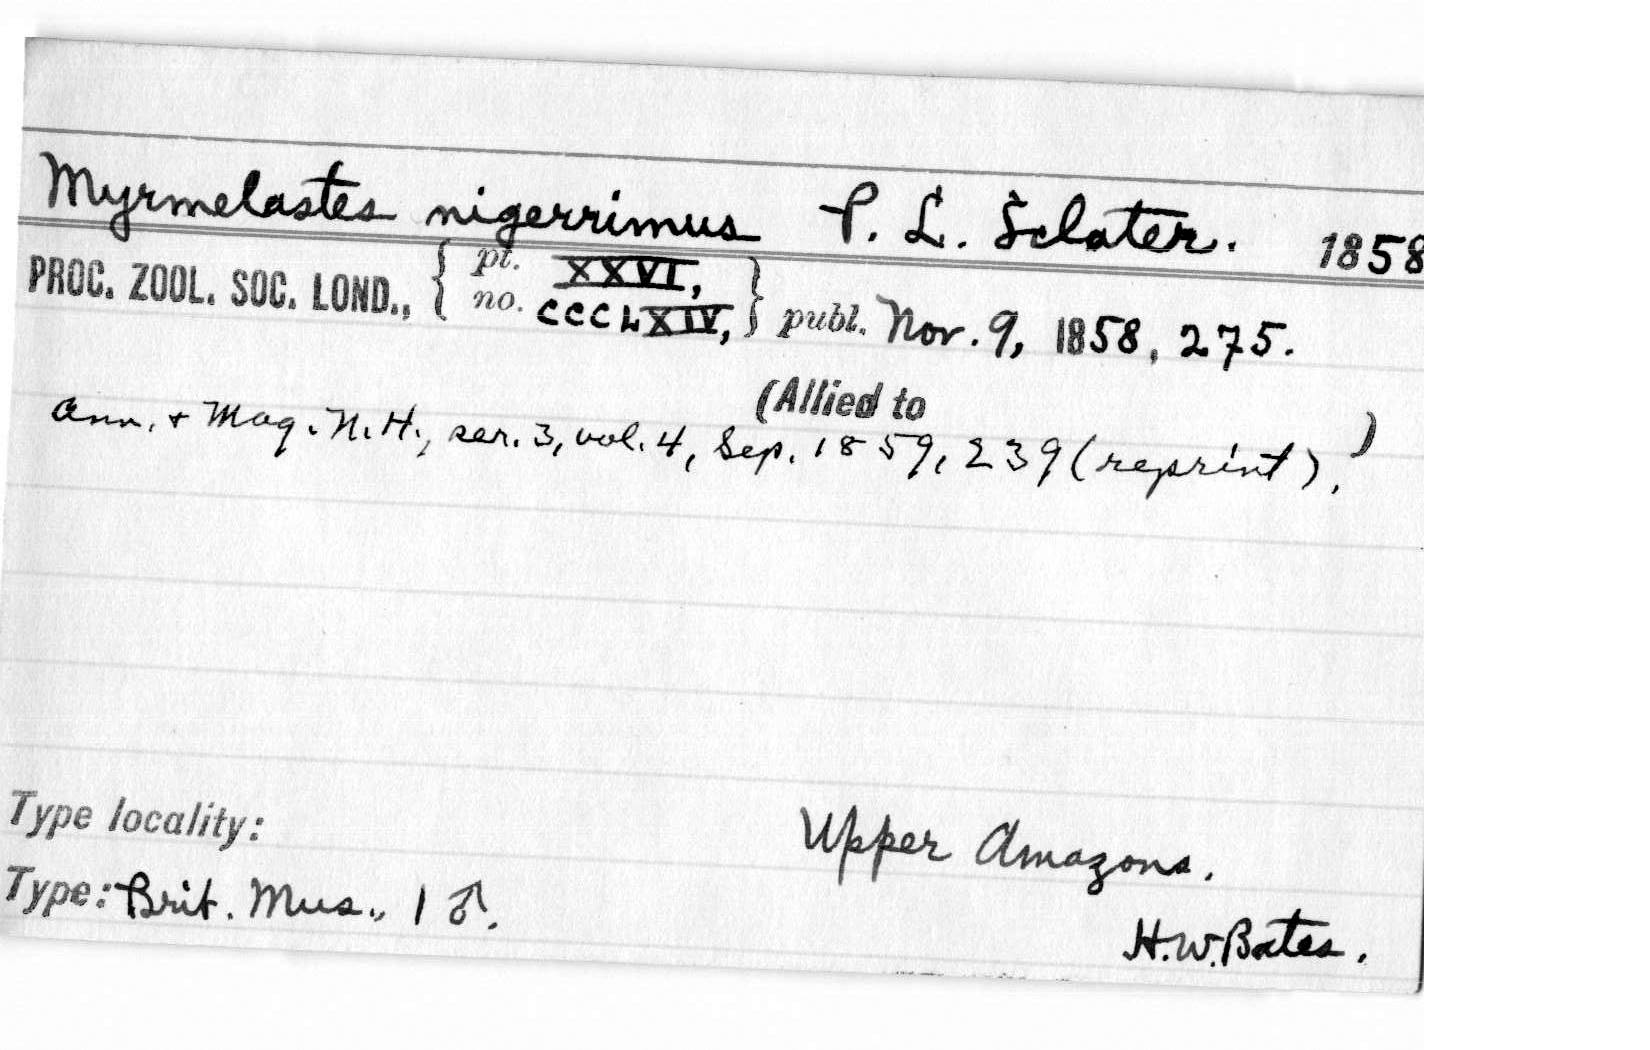 Myrmelastes nigerrimus P. L. Sclater. 1858
PROC. ZOOL. SOC. LOND., { pt. XXVI, no. CCCLXIV, } publ. Nov. 9, 1858, 275.
(Allied to )
Ann. + Mag. N.H., ser. 3, vol. 4, Sep. 1859, 239 (reprint).
Type locality: Upper Amazons.
Type: Brit. Mus., 1 ♂.
H.W. Bates.